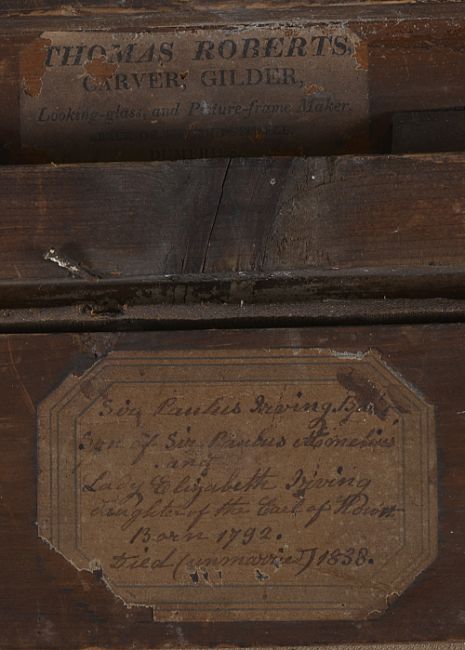 THOMAS ROBERTS,
CARVER, GILDER,
Looking-glass, and Picture-frame Maker,
DUMFRIES
Sir Paulus Irving Bart
Son of Sir Paulus Æmelius
and
Lady Elizabeth Irving
daughter of the Earl of
Born 1792.
Died (unmarried) 1838.